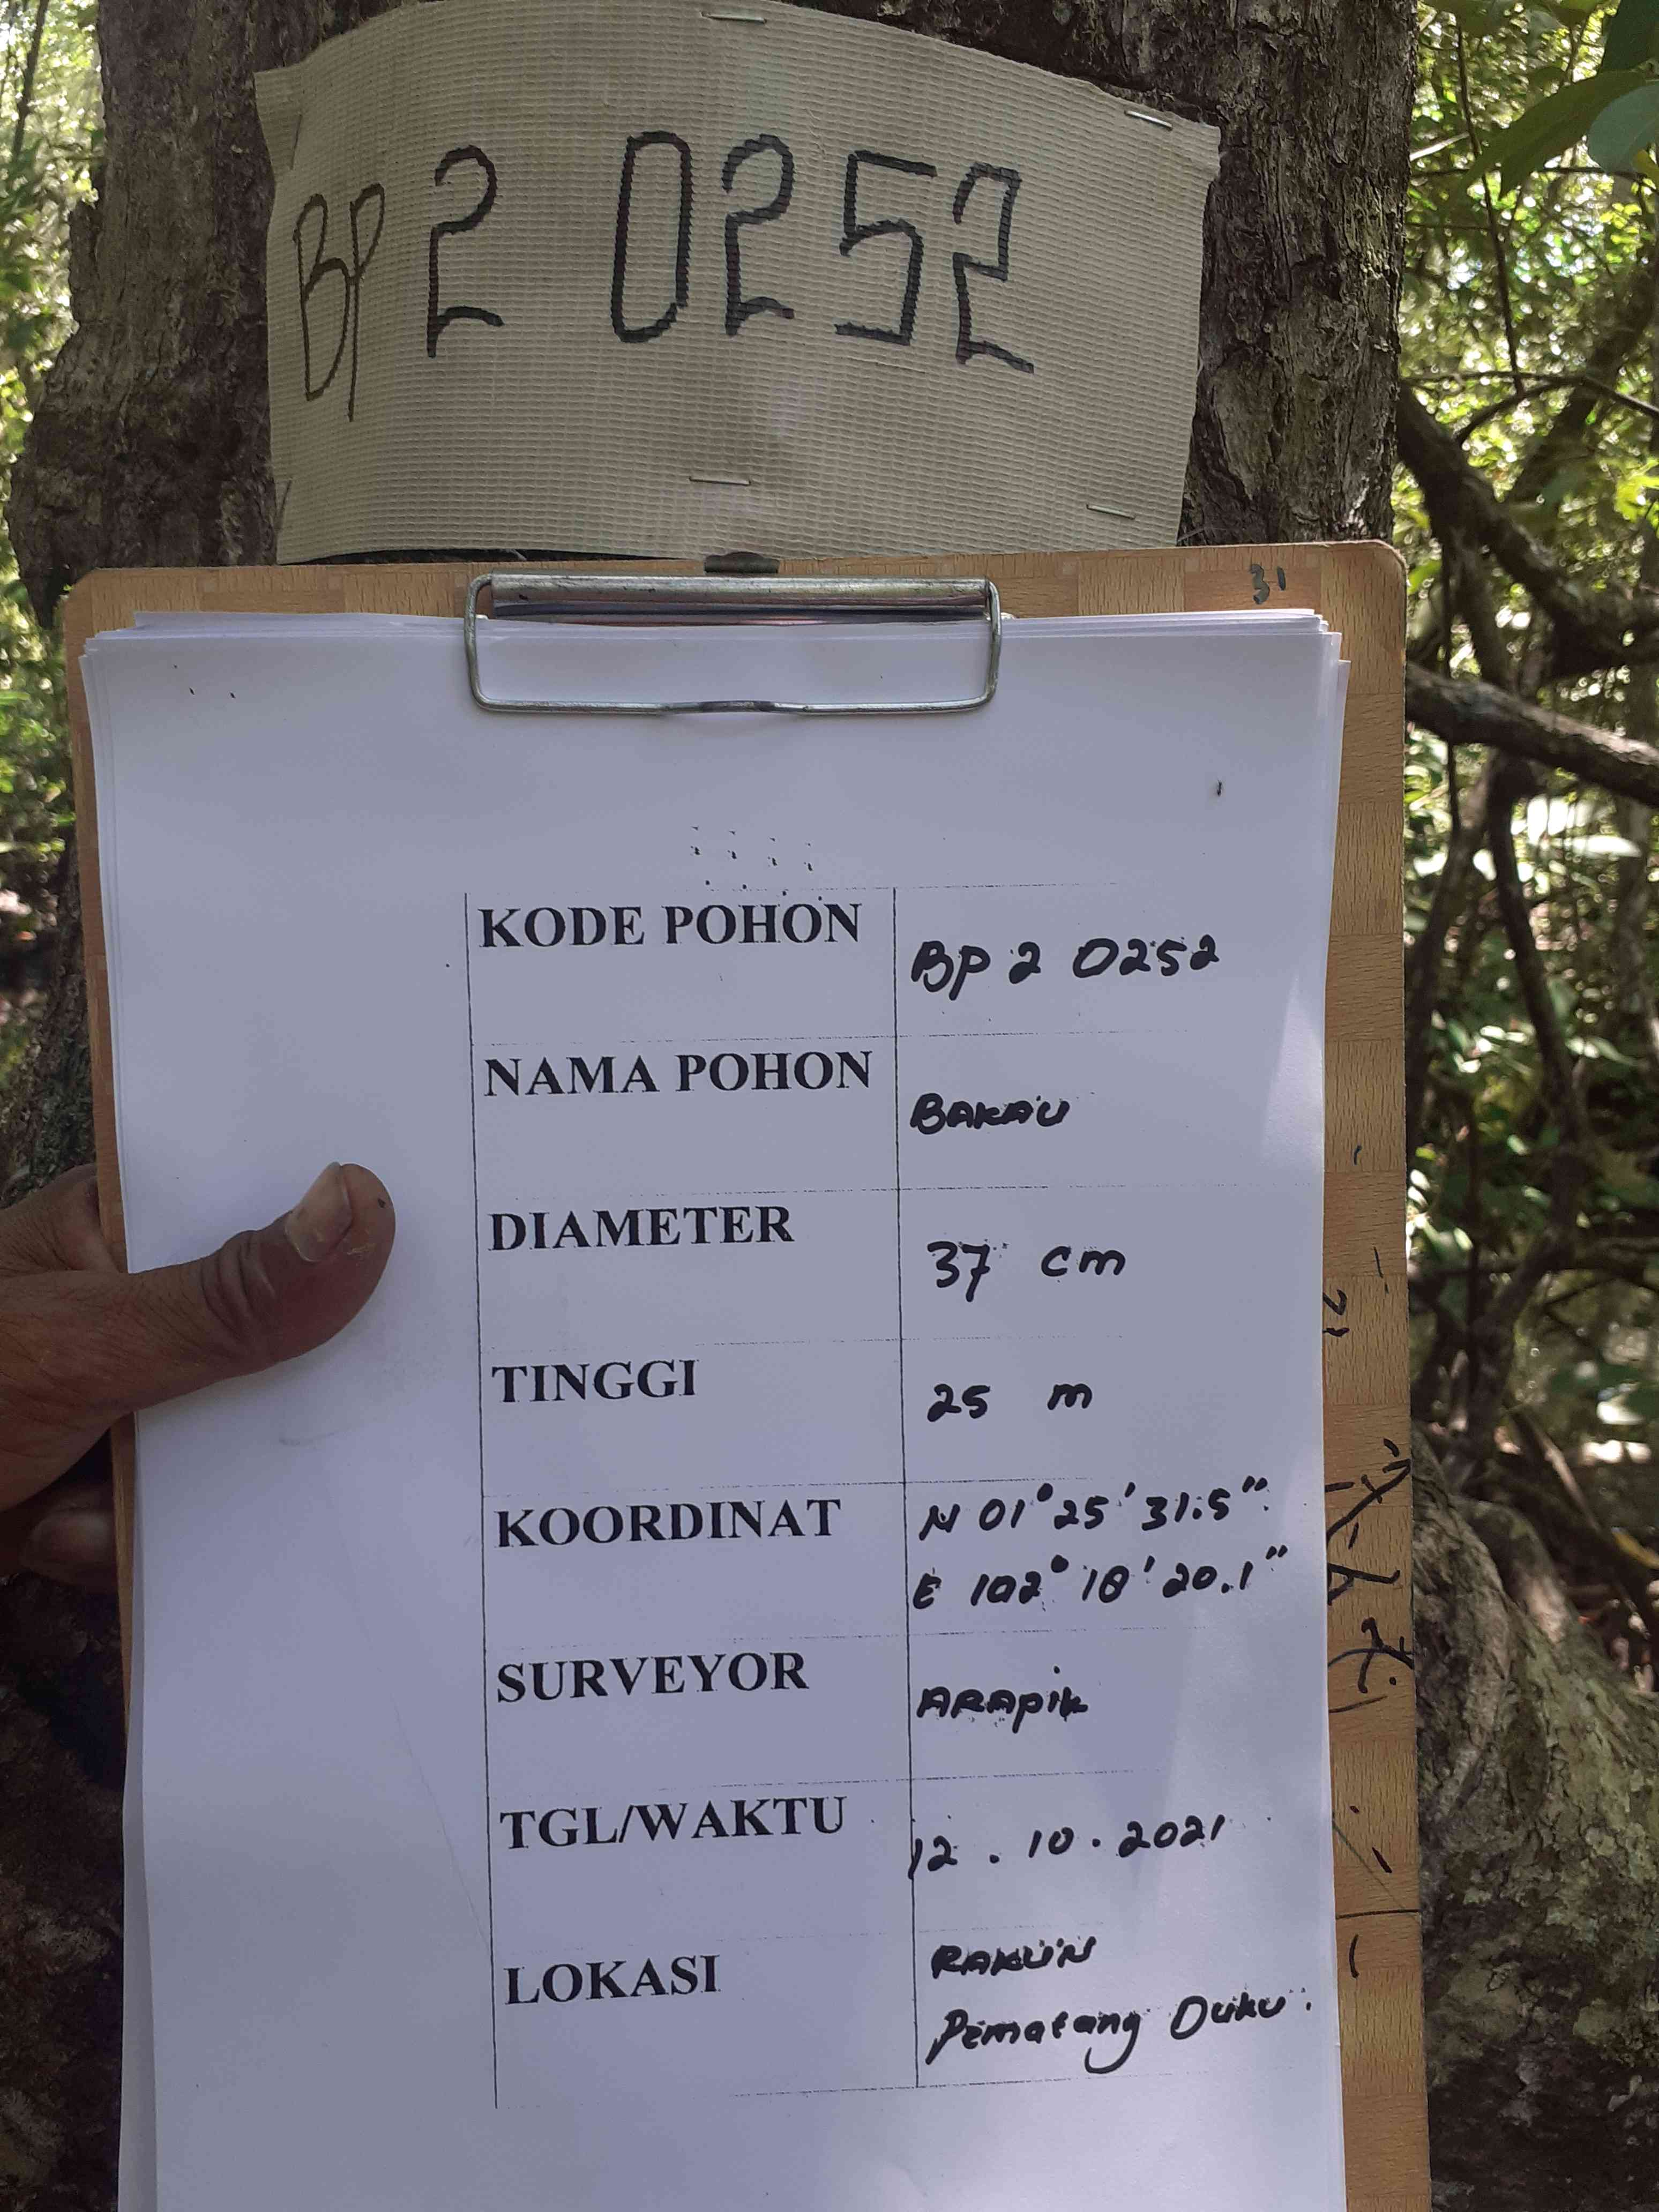 BP 2 0252
31
KODE POHON
BP 2 0252
NAMA POHON
BAKAU
DIAMETER
37 cm
TINGGI
25 m
KOORDINAT
N 01° 25' 31.5"
E 102° 18' 20.1"
SURVEYOR
ARAPIK
TGL/WAKTU
12 . 10 . 2021
LOKASI
RAKUN
Pematang Duku.